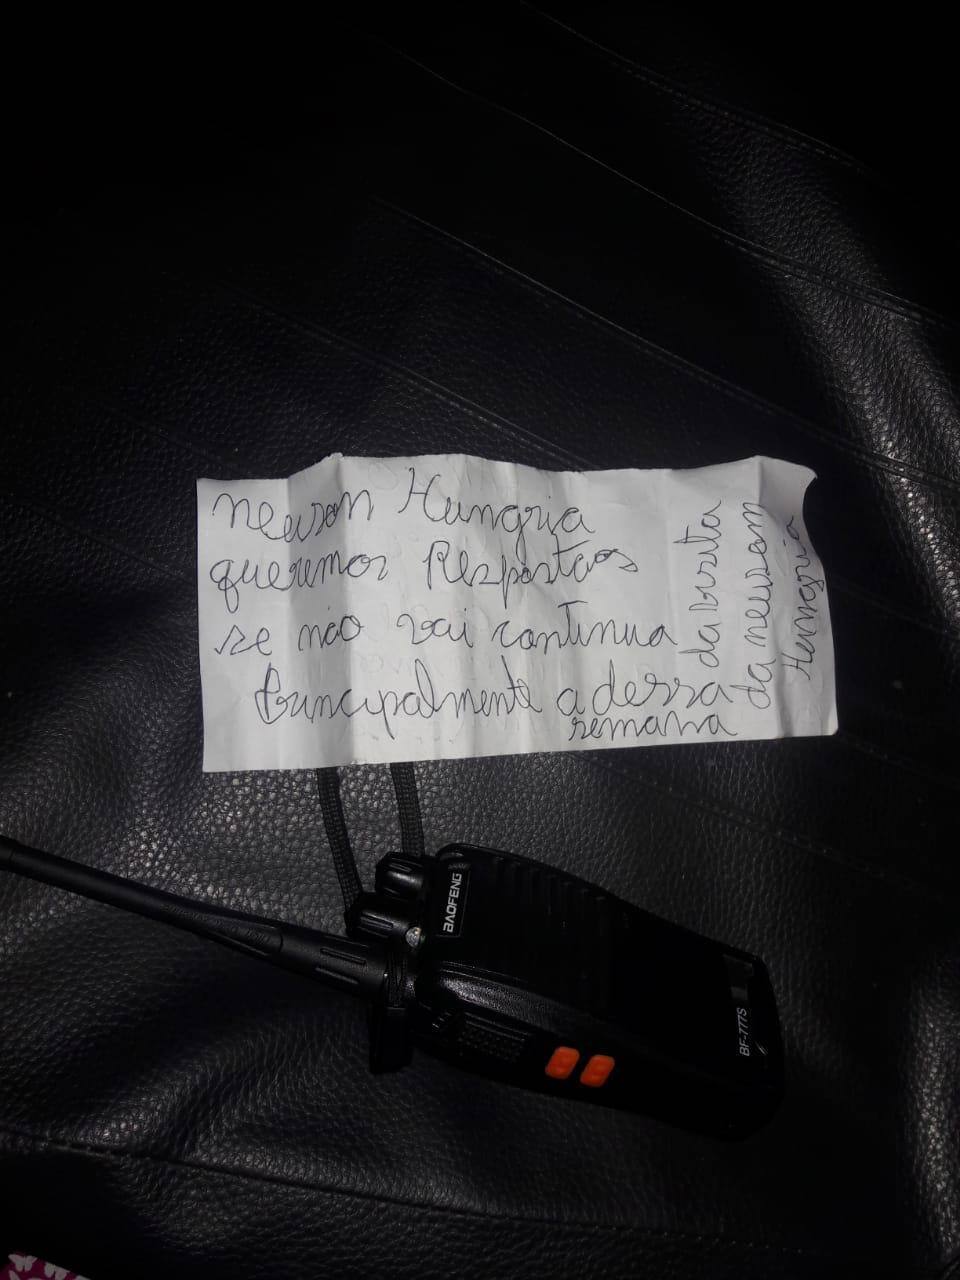 neuson Hungria
queremos Respostas
se não vai continua
Principalmente a dessa
semana
da busta
da neusom
Hungria
BAOFENG
BF-777S